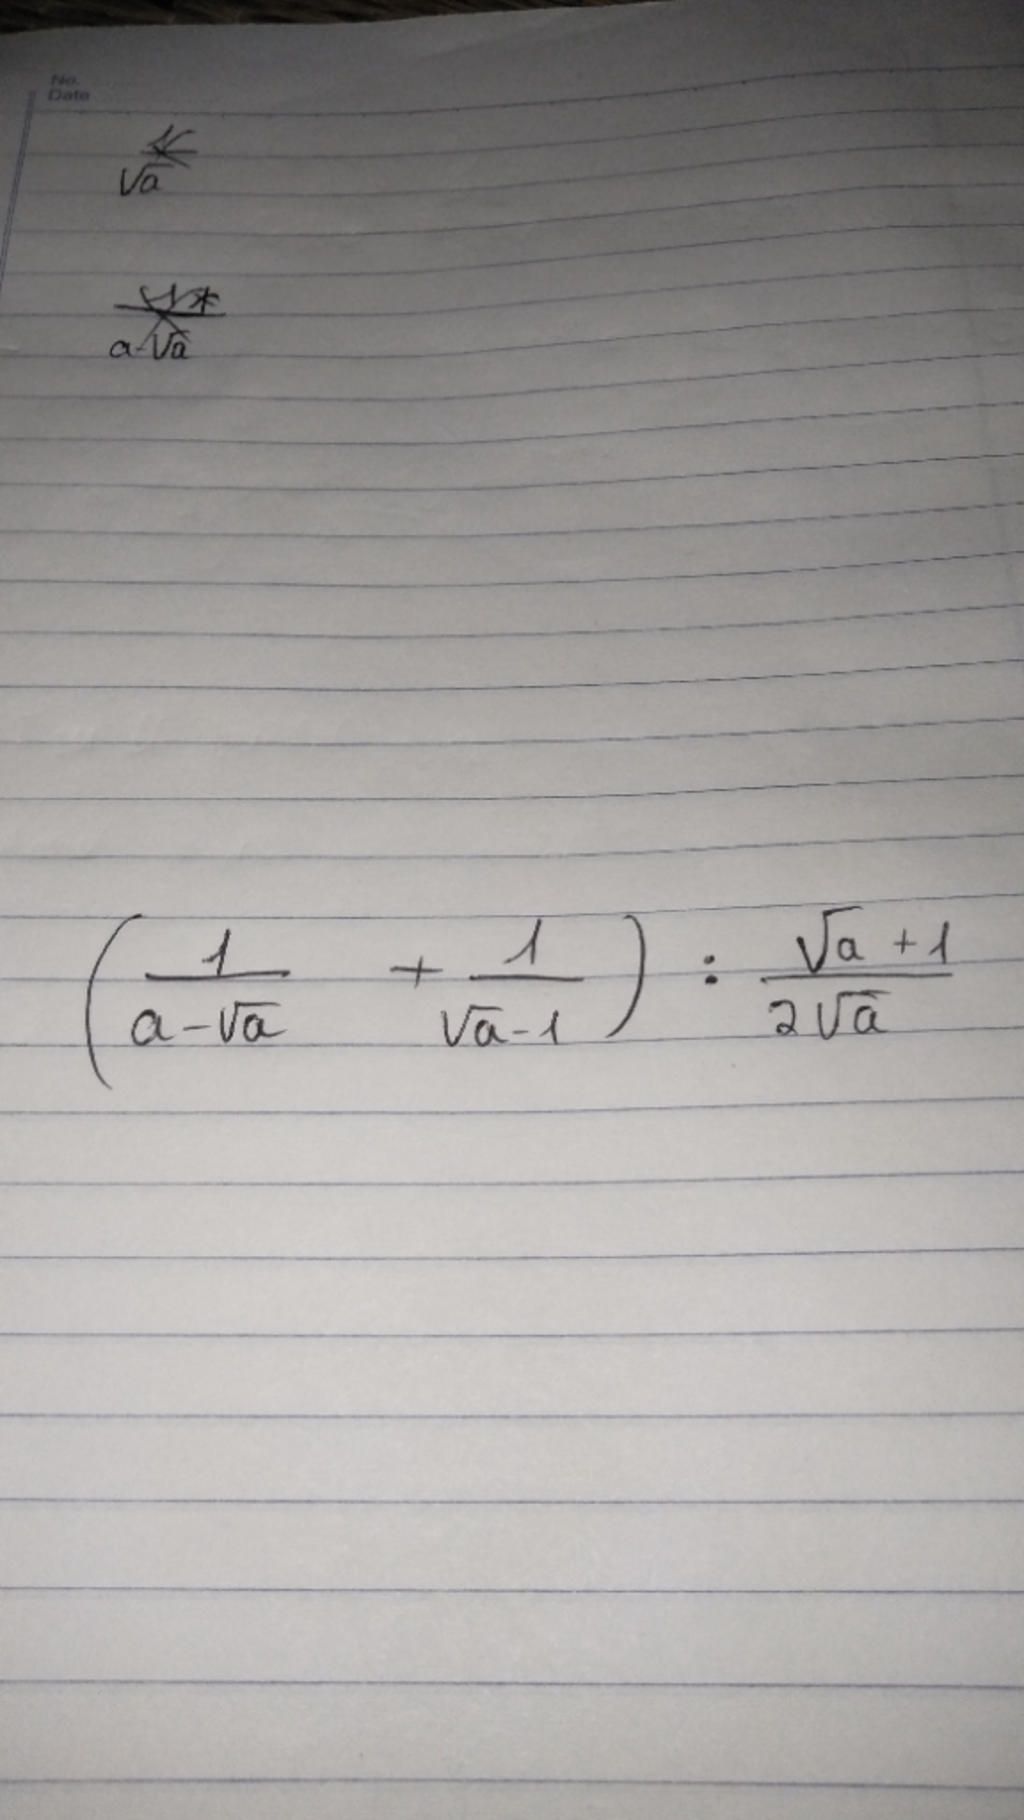 No.
Date
√a
a-√a
(1/(a-√a) + 1/(√a-1)) : (√a+1)/(2√a)